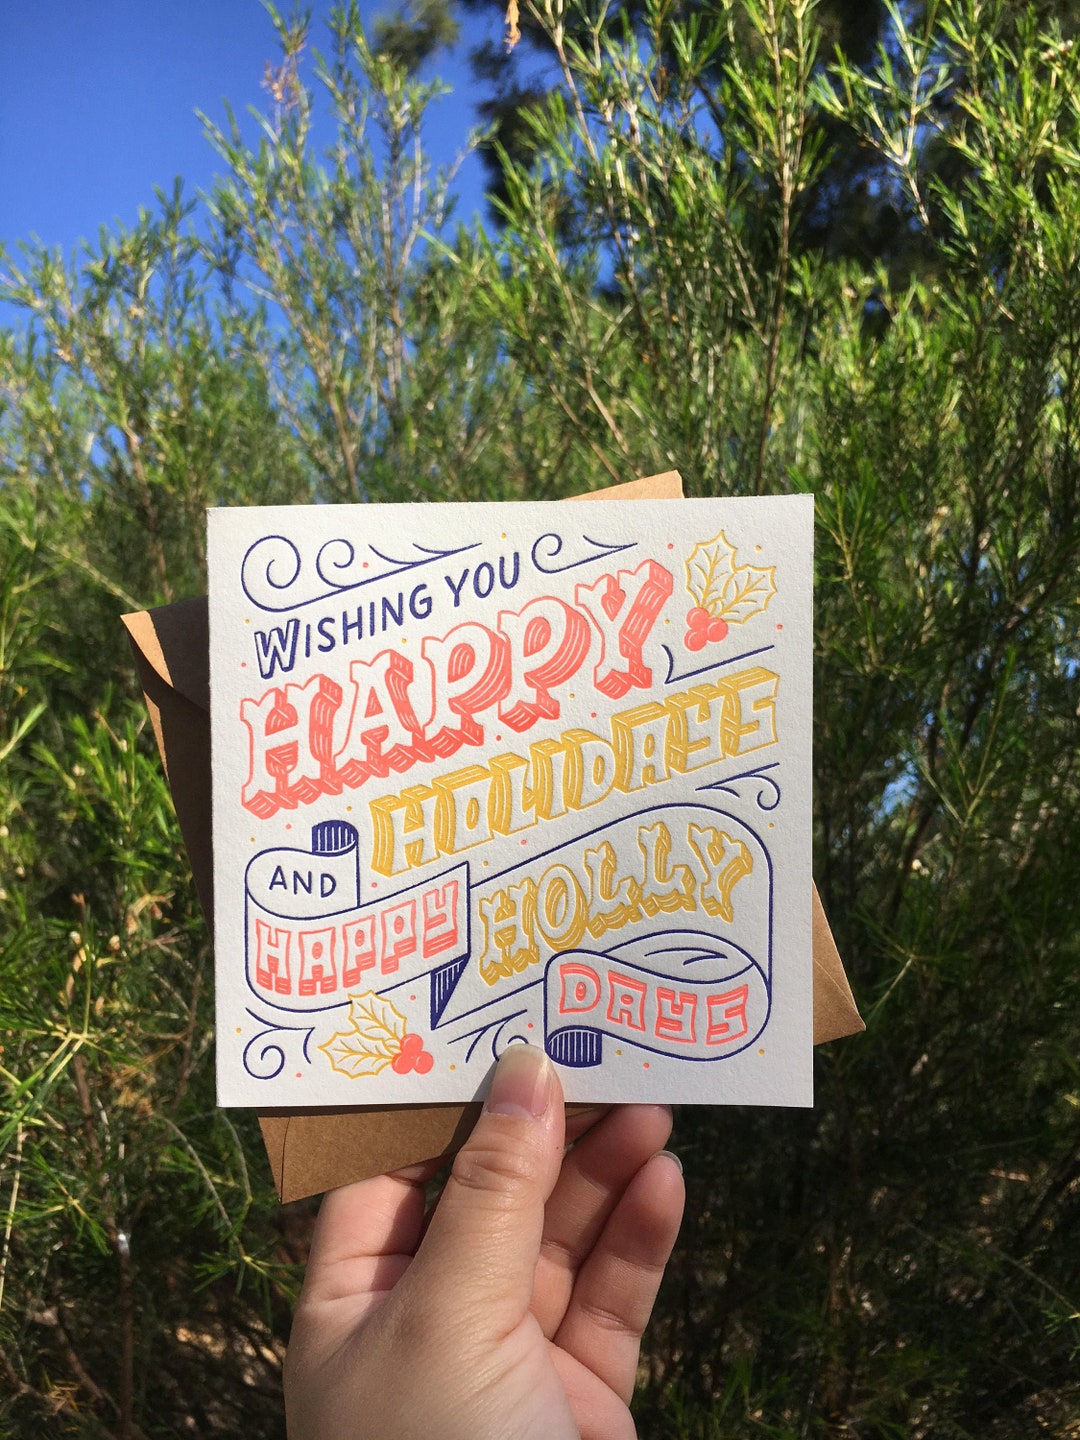 WISHING YOU
HAPPY
HOLIDAYS
AND
HAPPY HOLLY
DAYS